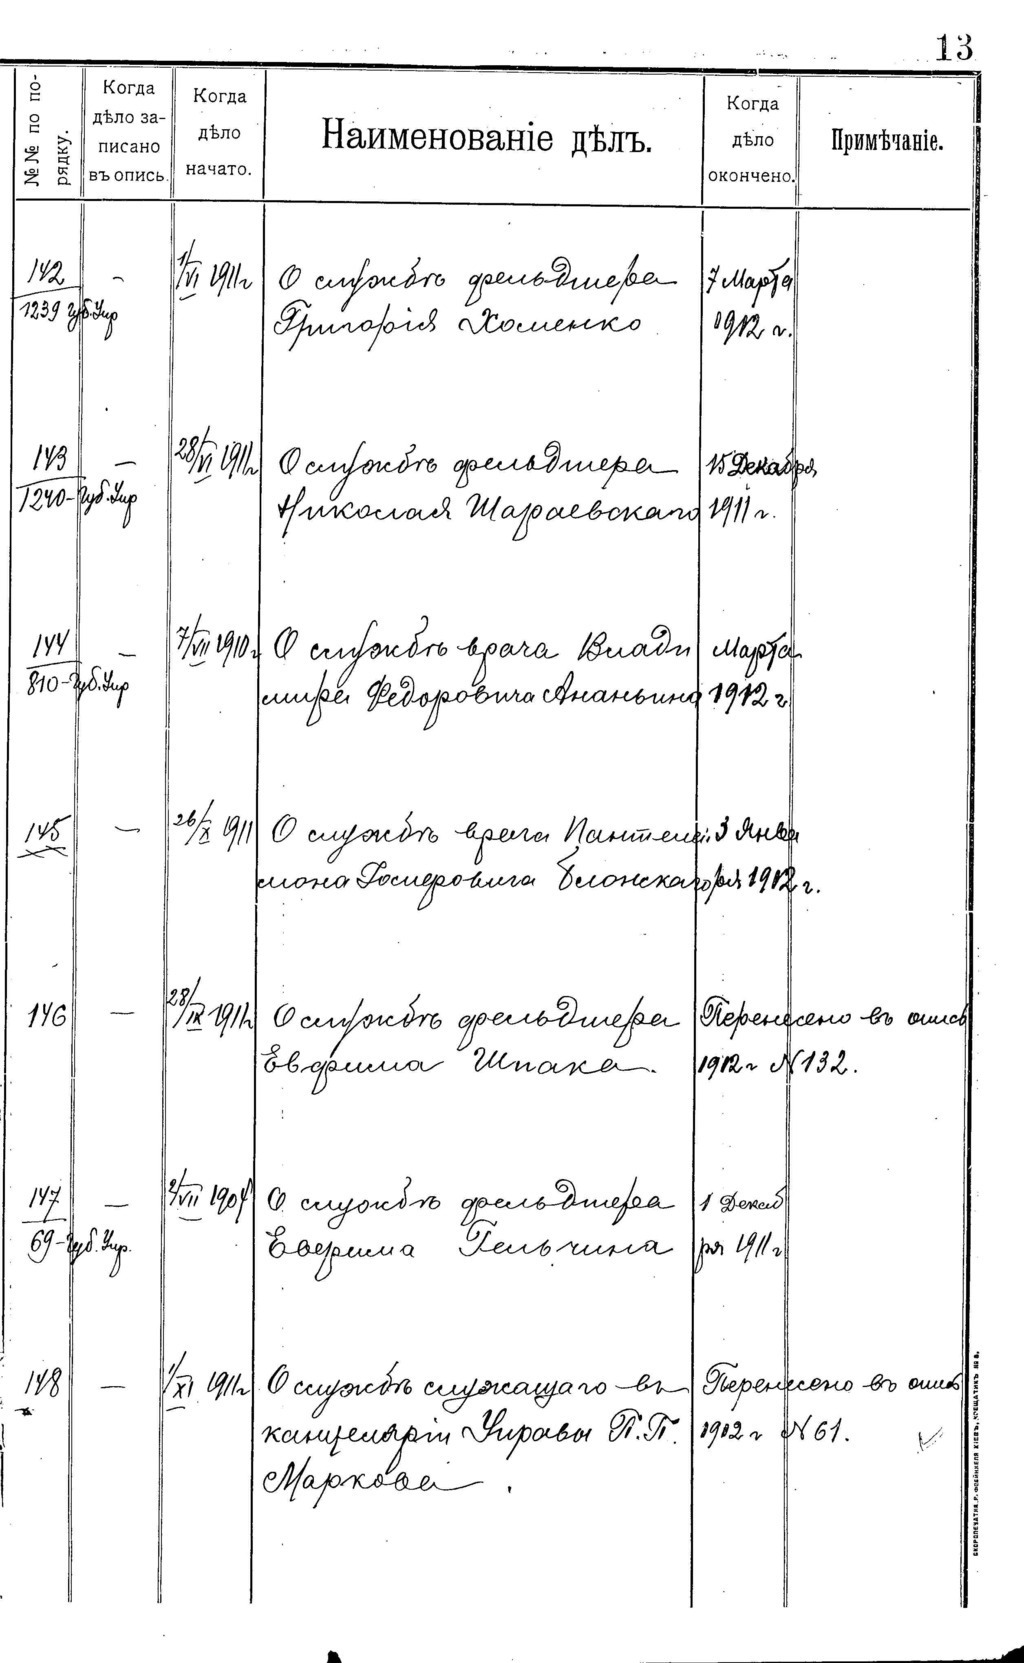 13
№№ по по-
рядку.
Когда
дѣло за-
писано
въ опись.
Когда
дѣло
начато.
Наименованіе дѣлъ.
Когда
дѣло
окончено.
Примѣчаніе.
142 — 1/VI 1911 г О службѣ фельдшера 7 Марта
1239 Губ. Упр Григорія Хоменко 1912 г.
143 — 28/VI 1911 г О службѣ фельдшера 15 Декабря
1240 - Губ. Упр Николая Шараевскаго 1911 г.
144 — 7/VII 1910 г О службѣ врача Влади Марта
810 - Губ. Упр мира Федоровича Ананьина 1912 г
145 — 26/X 1911 О службѣ врача Пантелей 3 Янва
мона Госперовича Блонскаго ря 1912 г.
146 — 28/IX 1911 г О службѣ фельдшера Перенесено въ опись
Евфима Шпака. 1912 г № 132.
147 — 2/VII 1904 О службѣ фельдшера 1 Декаб
69 - Губ. Упр. Ефрима Гельчина ря 1911 г
148 — 1/XI 1911 г О службѣ служащаго въ Перенесено въ опись
канцеляріи Управы П. П. 1912 г № 61.
Маркова.
СКОРОПЕЧАТНЯ Р. КІЕВЪ, КРЕЩАТИКЪ №